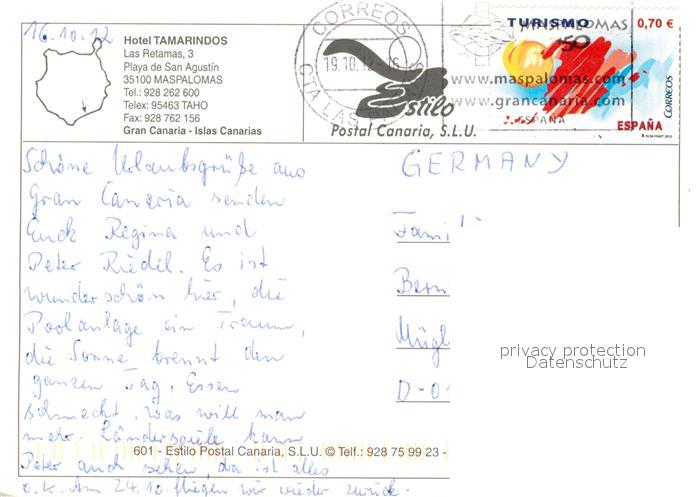 16.10.12
Hotel TAMARINDOS
Las Retamas, 3
Playa de San Agustín
35100 MASPALOMAS
Tel.: 928 262 600
Telex: 95463 TAHO
Fax: 928 762 156
Gran Canaria - Islas Canarias
CORREOS
19.10.12
CTA LAS
Estilo
Postal Canaria, S.L.U.
MASPALOMAS
50
www.maspalomas.com
www.grancanaria.com
ESPAÑA
TURISMO
0,70 €
CORREOS
ESPAÑA
Schöne Urlaubsgrüße aus
Gran Canaria senden
Euch Regina und
Peter Riedel. Es ist
wunderschön hier, die
Poolanlage ein Traum,
die Sonne brennt den
ganzen Tag, Essen
schmeckt. Was will man
mehr. Länderspiele kann
Peter auch sehen, da ist alles
o.k. Am 24.10. fliegen wir wieder zurück.
GERMANY
Fami
Bern
Mügl
D-0
privacy protection
Datenschutz
601 - Estilo Postal Canaria, S.L.U. © Telf.: 928 75 99 23 -